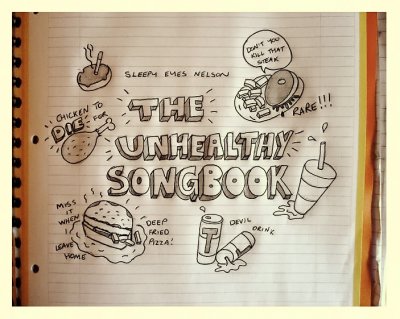 SLEEPY EYES NELSON
DON'T YOU
KILL THAT
STEAK
RARE!!!
CHICKEN TO
DIE FOR
THE
UNHEALTHY
SONGBOOK
MISS
IT WHEN
I
LEAVE
HOME
DEEP
FRIED
PIZZA!
T
DEVIL
DRINK